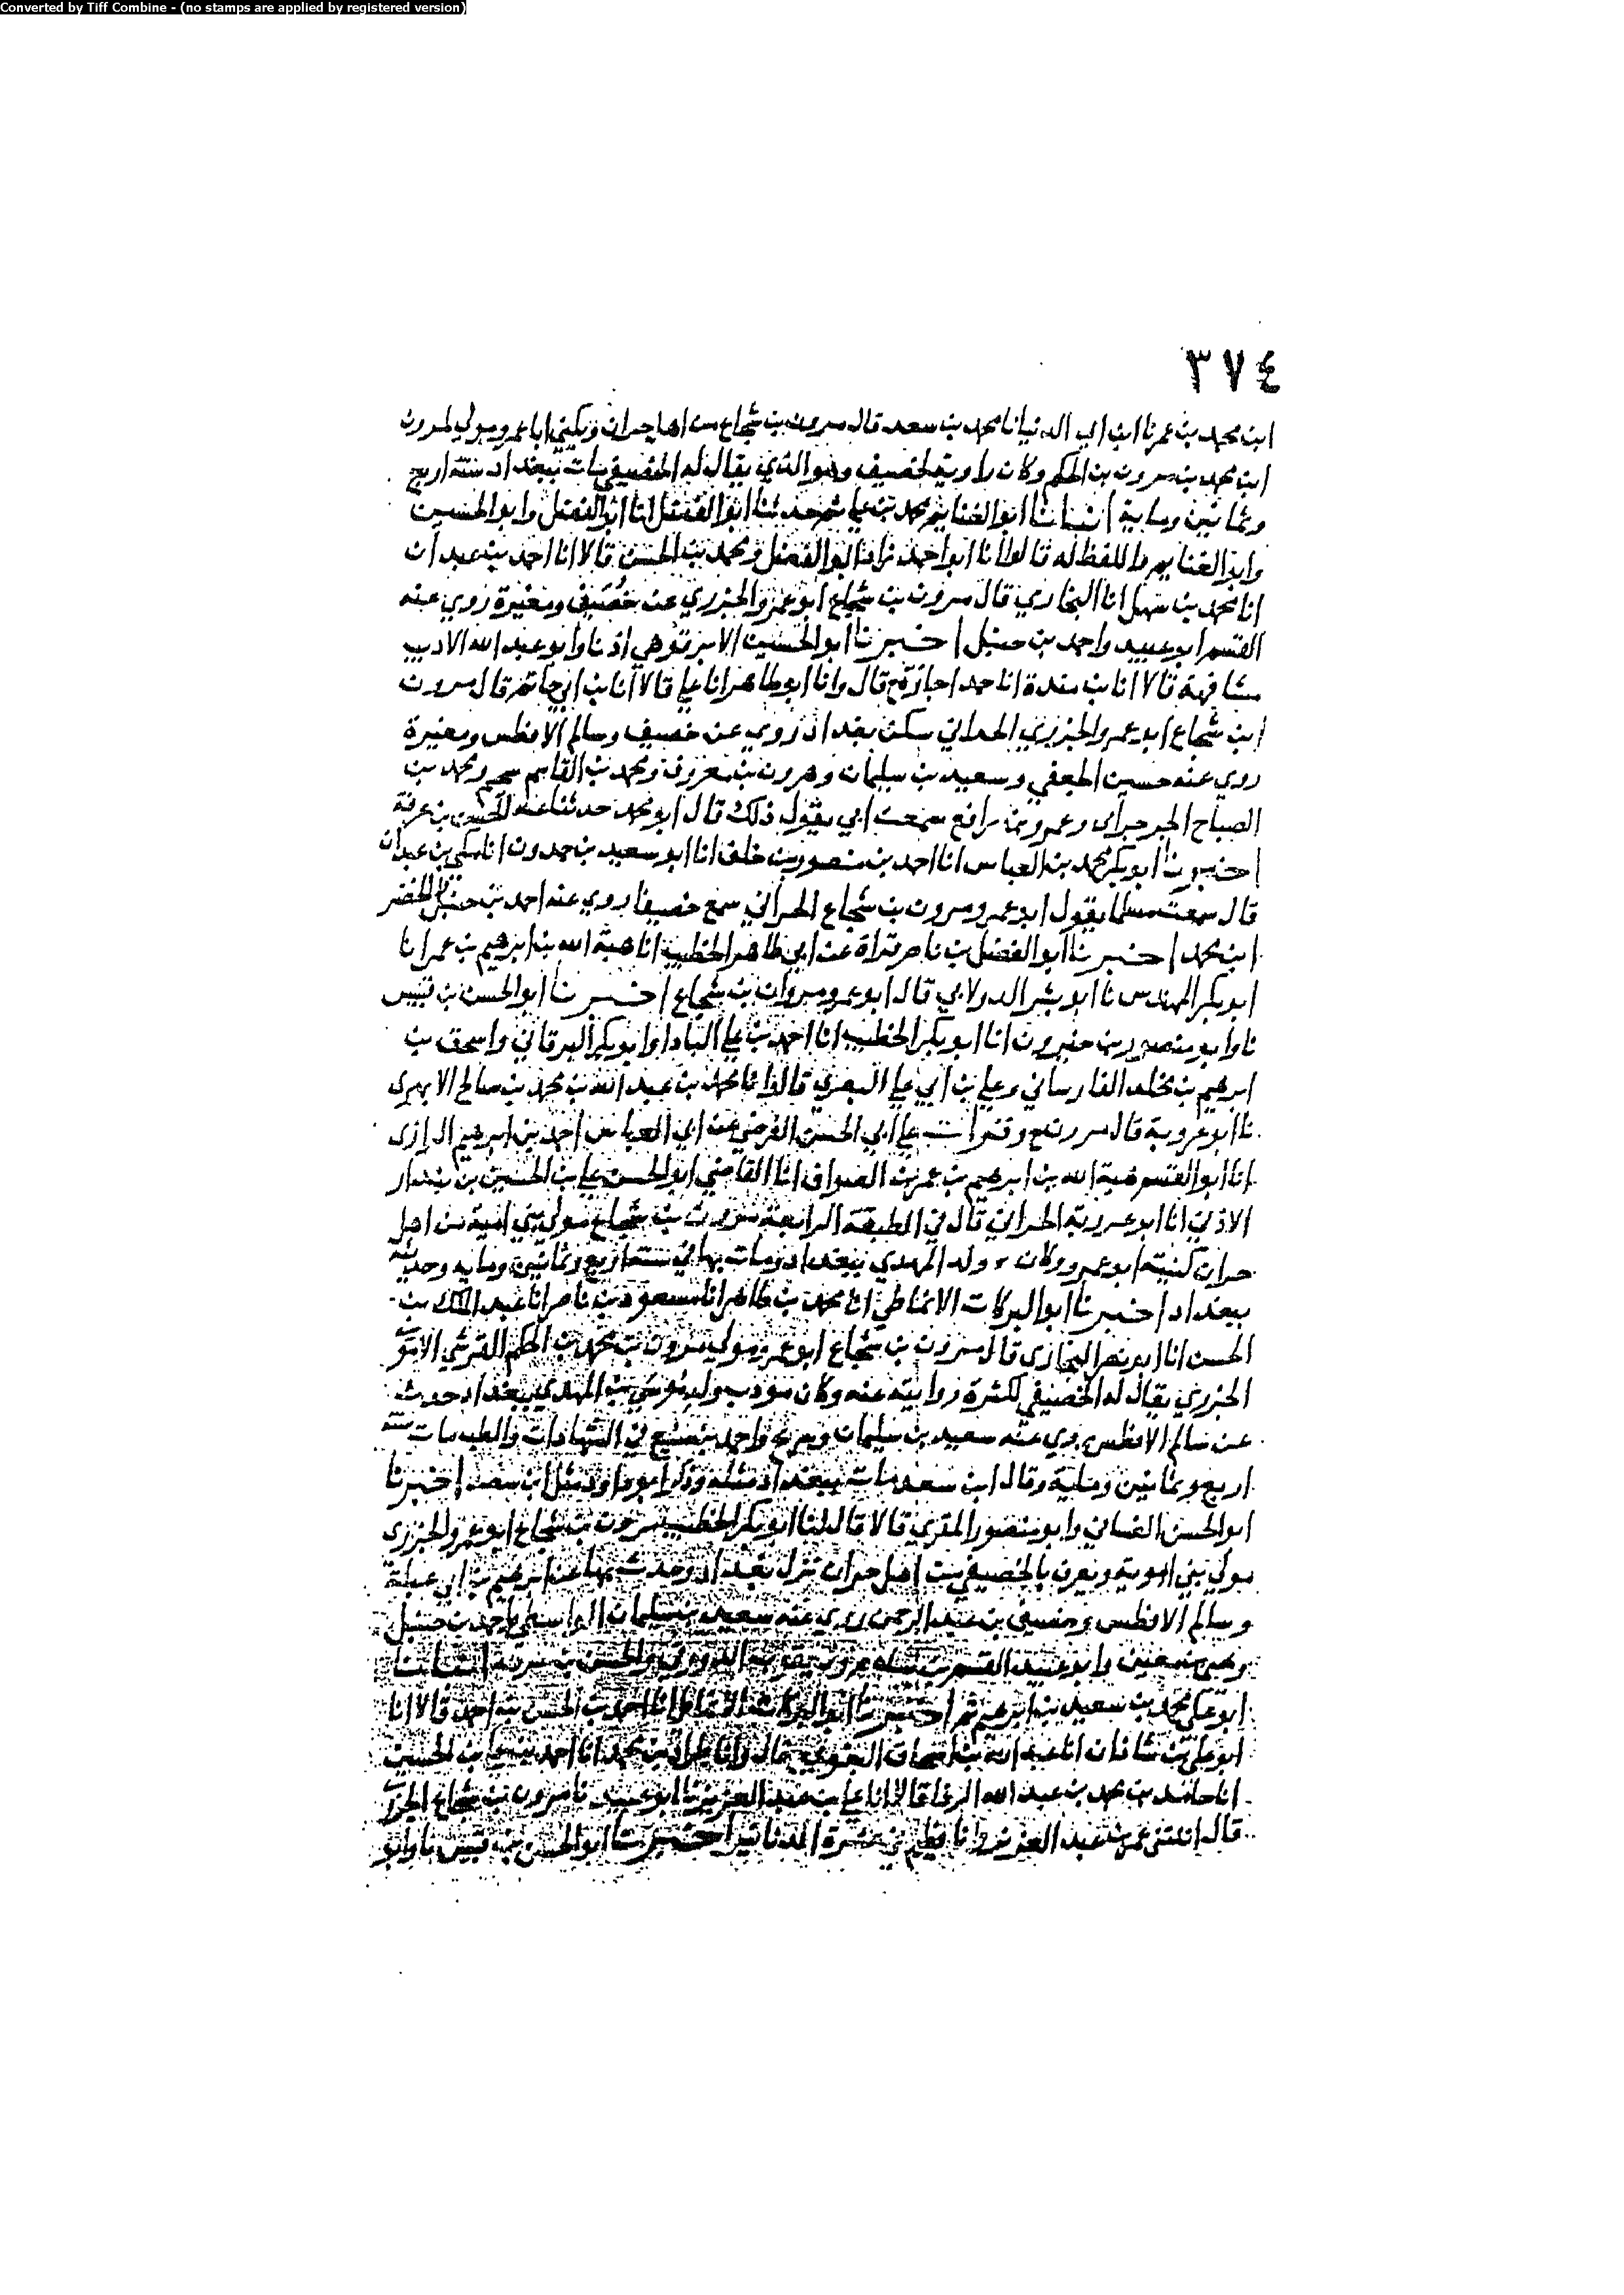 Converted by Tiff Combine - (no stamps are applied by registered version)
٣٧٤
ابن محمد بن عمر نا ابن ابي الدنيا نا محمد بن سعد قال مرون بن شجاع من اهل حران ويكنى ابا عمرو مولي لمرون
ابن محمد بن مرون بن الحكم وكان راوية لخصيف وهو الذي يقال له الخصيفي مات ببغداد سنة اربع
وثمانين وماية انبانا ابو الغنايم محمد بن علي ثم حدثنا ابو الفضل انا ابو الفضل وابو الحسين
وابو الغنايم واللفظ له قالوا انا ابو احمد زاد ابو الفضل ومحمد بن الحسن قالا انا احمد بن عبدان
انا محمد بن سهل انا البخاري قال مرون بن شجاع ابو عمرو الجزري عن خصيف ومغيرة روي عنه
القسم ابو عبيد واحمد بن حنبل اخبرنا ابو الحسين الابرقوهي اذنا وابو عبد الله الاديب
مشافهة قالا انا بن مندة انا حمد اجازة ح قال وانا ابو طاهر انا علي قالا انا بن ابي حاتم قال مرون
ابن شجاع ابو عمرو الجزري الحراني سكن بغداد روي عن خصيف وسالم الافطس ومغيرة
روي عنه حسين الجعفي وسعيد بن سليمان وهرون بن معروف ومحمد بن القاسم سحيم ومحمد بن
الصباح الجرجراي وعمرو بن رافع سمعت ابي يقول ذلك قال ابو محمد حدثنا عنه الحسن بن عرفة
اخبرنا ابو بكر محمد بن العباس انا احمد بن منصور بن خلف انا ابو سعيد بن حمدون انا مكي بن عبدان
قال سمعت مسلما يقول ابو عمرو مرون بن شجاع الحراني سمع خصيفا روي عنه احمد بن حنبل والخضر
ابن محمد اخبرنا ابو الفضل بن ناصر قراة عن ابي طاهر الخطيب انا هبة الله بن ابرهيم بن عمر انا
ابو بكر المهندس نا ابو بشر الدولابي قال ابو عمرو مروان بن شجاع اخبرنا ابو الحسن بن قبيس
نا وابو منصور بن خيرون انا ابو بكر الخطيب انا احمد بن علي البادا وابو بكر البرقاني واسحق بن
ابرهيم بن مخلد الفارساني وعلي بن ابي علي البصري قالوا انا محمد بن عبد الله بن محمد بن صالح الابهري
نا ابو عروبة قال مرون ح وقرات علي ابي الحسن الفرضي عن ابي العباس احمد بن ابرهيم الرازي
انا ابو القسم هبة الله بن ابرهيم بن عمر بن الصواف انا القاضي ابو الحسن علي بن الحسين بن بندار
الاذني انا ابو عروبة الحراني قال في الطبقة الرابعة مرون بن شجاع مولى بني امية من اهل
حران كنيته ابو عمرو وكان ولد المهدي ببغداد ومات بها في سنة اربع وثمانين وماية وحديثه
ببغداد اخبرنا ابو البركات الانماطي انا محمد بن طاهر انا مسعود بن ناصر انا عبد الملك بن
الحسن انا ابو نصر البخاري قال مرون بن شجاع ابو عمرو مولي مرون بن محمد بن الحكم القرشي الاموي
الجزري يقال له الخصيفي لكثرة روايته عنه وكان مودب ولد موسي بن المهدي ببغداد حدث
عن سالم الافطس روي عنه سعيد بن سليمان وسريج واحمد بن منيع في الشهادات والطب مات سنة
اربع وثمانين وماية وقال ابن سعد مات ببغداد مثله وذكر ابو داود مثل ابن سعد اخبرنا
ابو الحسن الغساني وابو منصور المقري قالا قال لنا ابو بكر الخطيب مرون بن شجاع ابو عمرو الجزري
مولي بني اموية ويعرف بالخصيفي من اهل حران نزل بغداد وحدث بها عن ابرهيم بن ابي عبلة
وسالم الافطس وخصيف بن عبد الرحمن روي عنه سعيد بن سليمان الواسطي واحمد بن حنبل
ويحيى بن معين وابو عبيد القسم بن سلام ويعقوب الدورقي والحسن بن عرفة انبانا
ابو علي محمد بن سعيد بن ابرهيم ثم اخبرنا ابو البركات الانماطي انا احمد بن الحسن بن احمد قالا انا
ابو علي بن شاذان انا عبد الله بن اسحاق البغوي قال وانا طراد بن محمد انا احمد بن علي بن الحسين
انا حامد بن محمد بن عبد الله الرفا قالا انا علي بن عبد العزيز نا ابو عبيد نا مرون بن شجاع الجزري
قال عمر بن عبد العزيز وانا في عشرة الدنانير اخبرنا ابو الحسن بن قبيس نا وابو